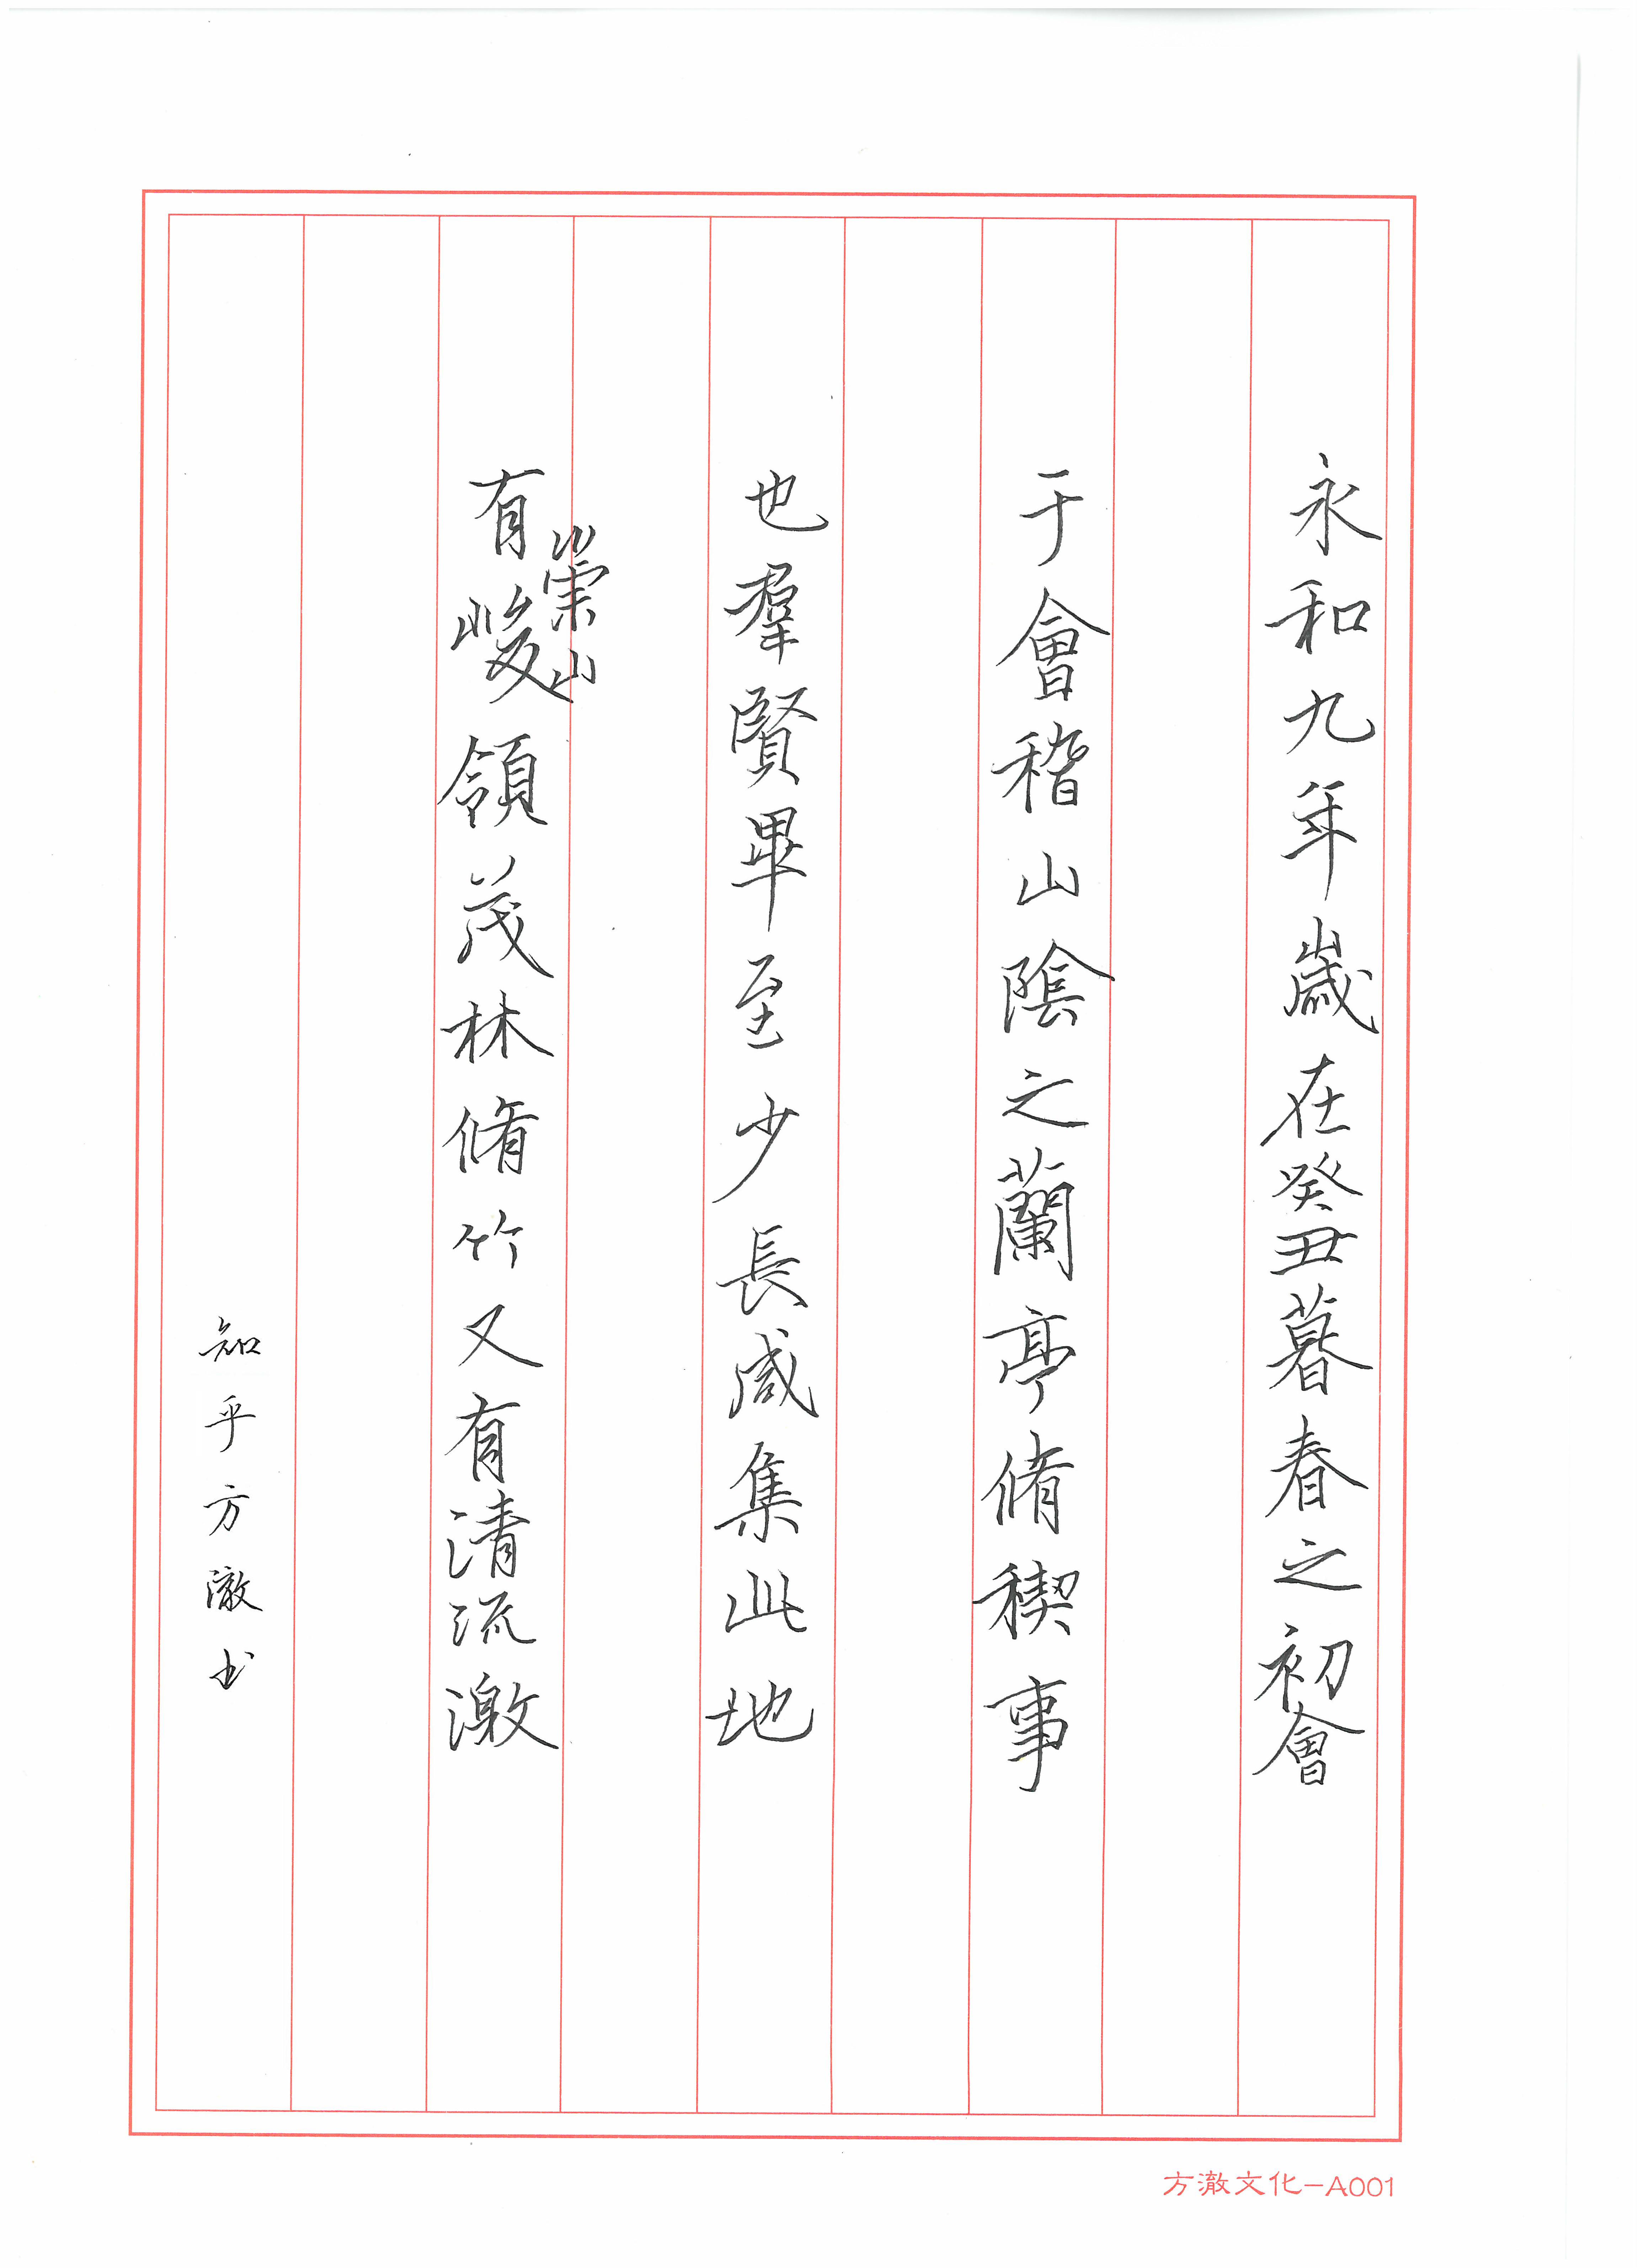 永和九年歲在癸丑暮春之初會
于會稽山陰之蘭亭脩稧事
也羣賢畢至少長咸集此地
有崇山峻領茂林脩竹又有清流激
知乎方澈书
方澈文化-A001